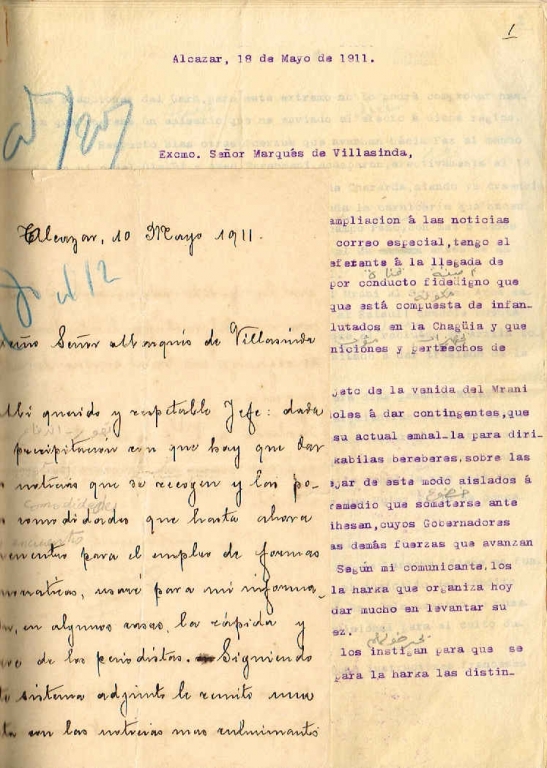 1
Alcazar, 18 de Mayo de 1911.
Excmo. Señor Marqués de Villasinda,
ampliacion á las noticias
correo especial, tengo el
eferente á la llegada de
por conducto fidedigno que
que está compuesta de infan_
lutados en la Chagüia y que
niciones y pertrechos de
jeto de la venida del Mrani
oles á dar contingentes, que
su actual emhal-la para diri_
kabilas bereberes, sobre las
ejar de este modo aislados á
remedio que someterse ante
ihesen, cuyos Gobernadores
as demás fuerzas que avanzan
Según mi comunicante, los
la harka que organiza hoy
dar mucho en levantar su
ez.
los instigan para que se
para la harka las distin_
Alcazar, 10 Mayo 1911.
Señor Marqués de Villasinda
Mi querido y respetable Jefe: dada
precipitación con que hay que dar
noticias que se recogen y las po-
comodidades que hasta ahora
cuentro para el empleo de formas
usaré para mi informa_
en algunos casos, la rápida y
de los periodistas. - Siguiendo
sistema adjunto le remito una
con las noticias mas culminantes